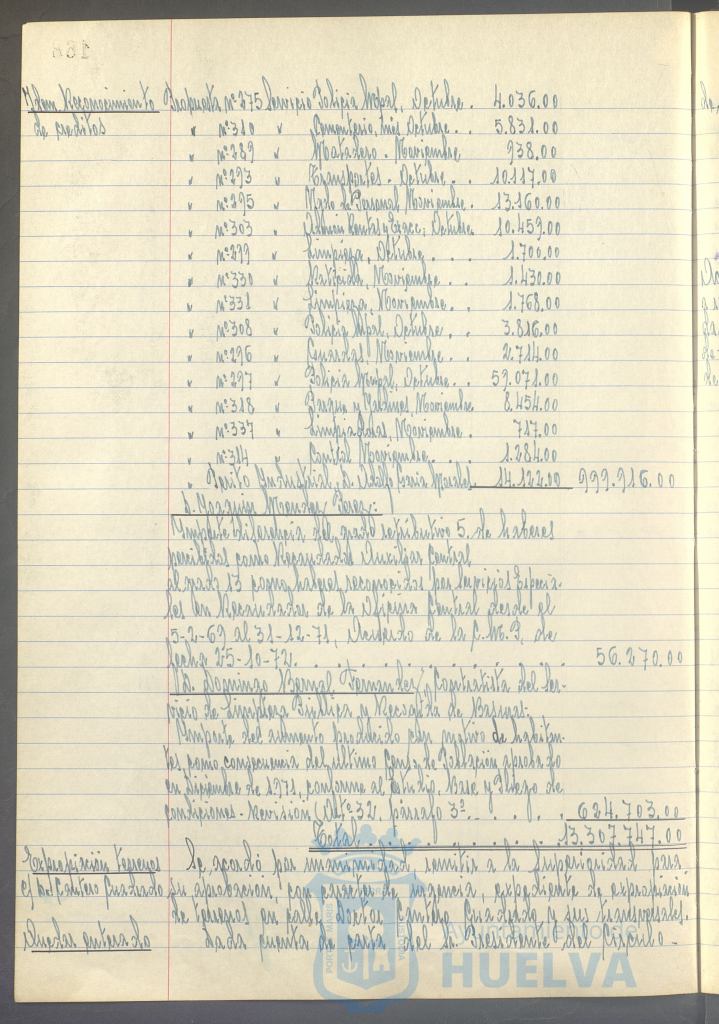 168
Idem Reconocimiento
de creditos
Propuesta nº 275 Servicio Policia Mpal, Octubre. 4.036.00
" nº 310 " Cementerio, mes Octubre.. 5.831.00
" nº 289 " Matadero - Noviembre 938.00
" nº 293 " Transportes. Octubre.. 10.117.00
" nº 295 " Ngdo de Personal Noviembre. 13.160.00
" nº 303 " Admon Rentas y Exacc; Octubre. 10.459.00
" nº 299 " Limpieza, Octubre.... 1.700.00
" nº 330 " Noviembre.. 1.430.00
" nº 331 " Limpieza, Noviembre.. 1.768.00
" nº 308 " Policia Mpal, Octubre.. 3.816.00
" nº 296 " Guardas, Noviembre.. 2.714.00
" nº 297 " Policia Mpal, Octubre.. 59.071.00
" nº 318 " Parque y Jardines, Noviembre 8.454.00
" nº 337 " Noviembre.. 717.00
" nº 314 " Control Noviembre... 1.284.00
" Perito Industrial, D. Adolfo Morales. 14.122.00 999.916.00
D. Joaquin Mendez Perez:
Importe diferencia del grado retributivo 5. de haberes
percibidos como Recaudador Auxiliar Central
al grado 13 como haberes reconocidos por Servicios Especia-
les en Recaudador de la Oficina Central desde el
5-2-69 al 31-12-71, Acuerdo de la C.M.P, de
fecha 25-10-72. 56.270.00
D. Domingo Bernal Fernandez, Contratista del Ser-
vicio de Limpieza Publica y Recogida de Basuras:
Importe del aumento producido con motivo de habitan-
tes como consecuencia del ultimo Censo de Poblacion aprobado
en Diciembre de 1971, conforme al Estudio, Base y Pliego de
condiciones - Revisión (Artº 32, párrafo 3º..... 624.703.00
Total 13.307.747.00
Expropiación terrenos
c/ Dr Cantero Cuadrado
Se acordó por unanimidad remitir a la Superioridad para
su aprobacion, con caracter de urgencia, expediente de expropiación
de terrenos en calle Doctor Cantero Cuadrado y sus transversales.
Quedar enterado
Dada cuenta de carta del Sr. Presidente del Circulo-
Ayuntamiento de
HUELVA